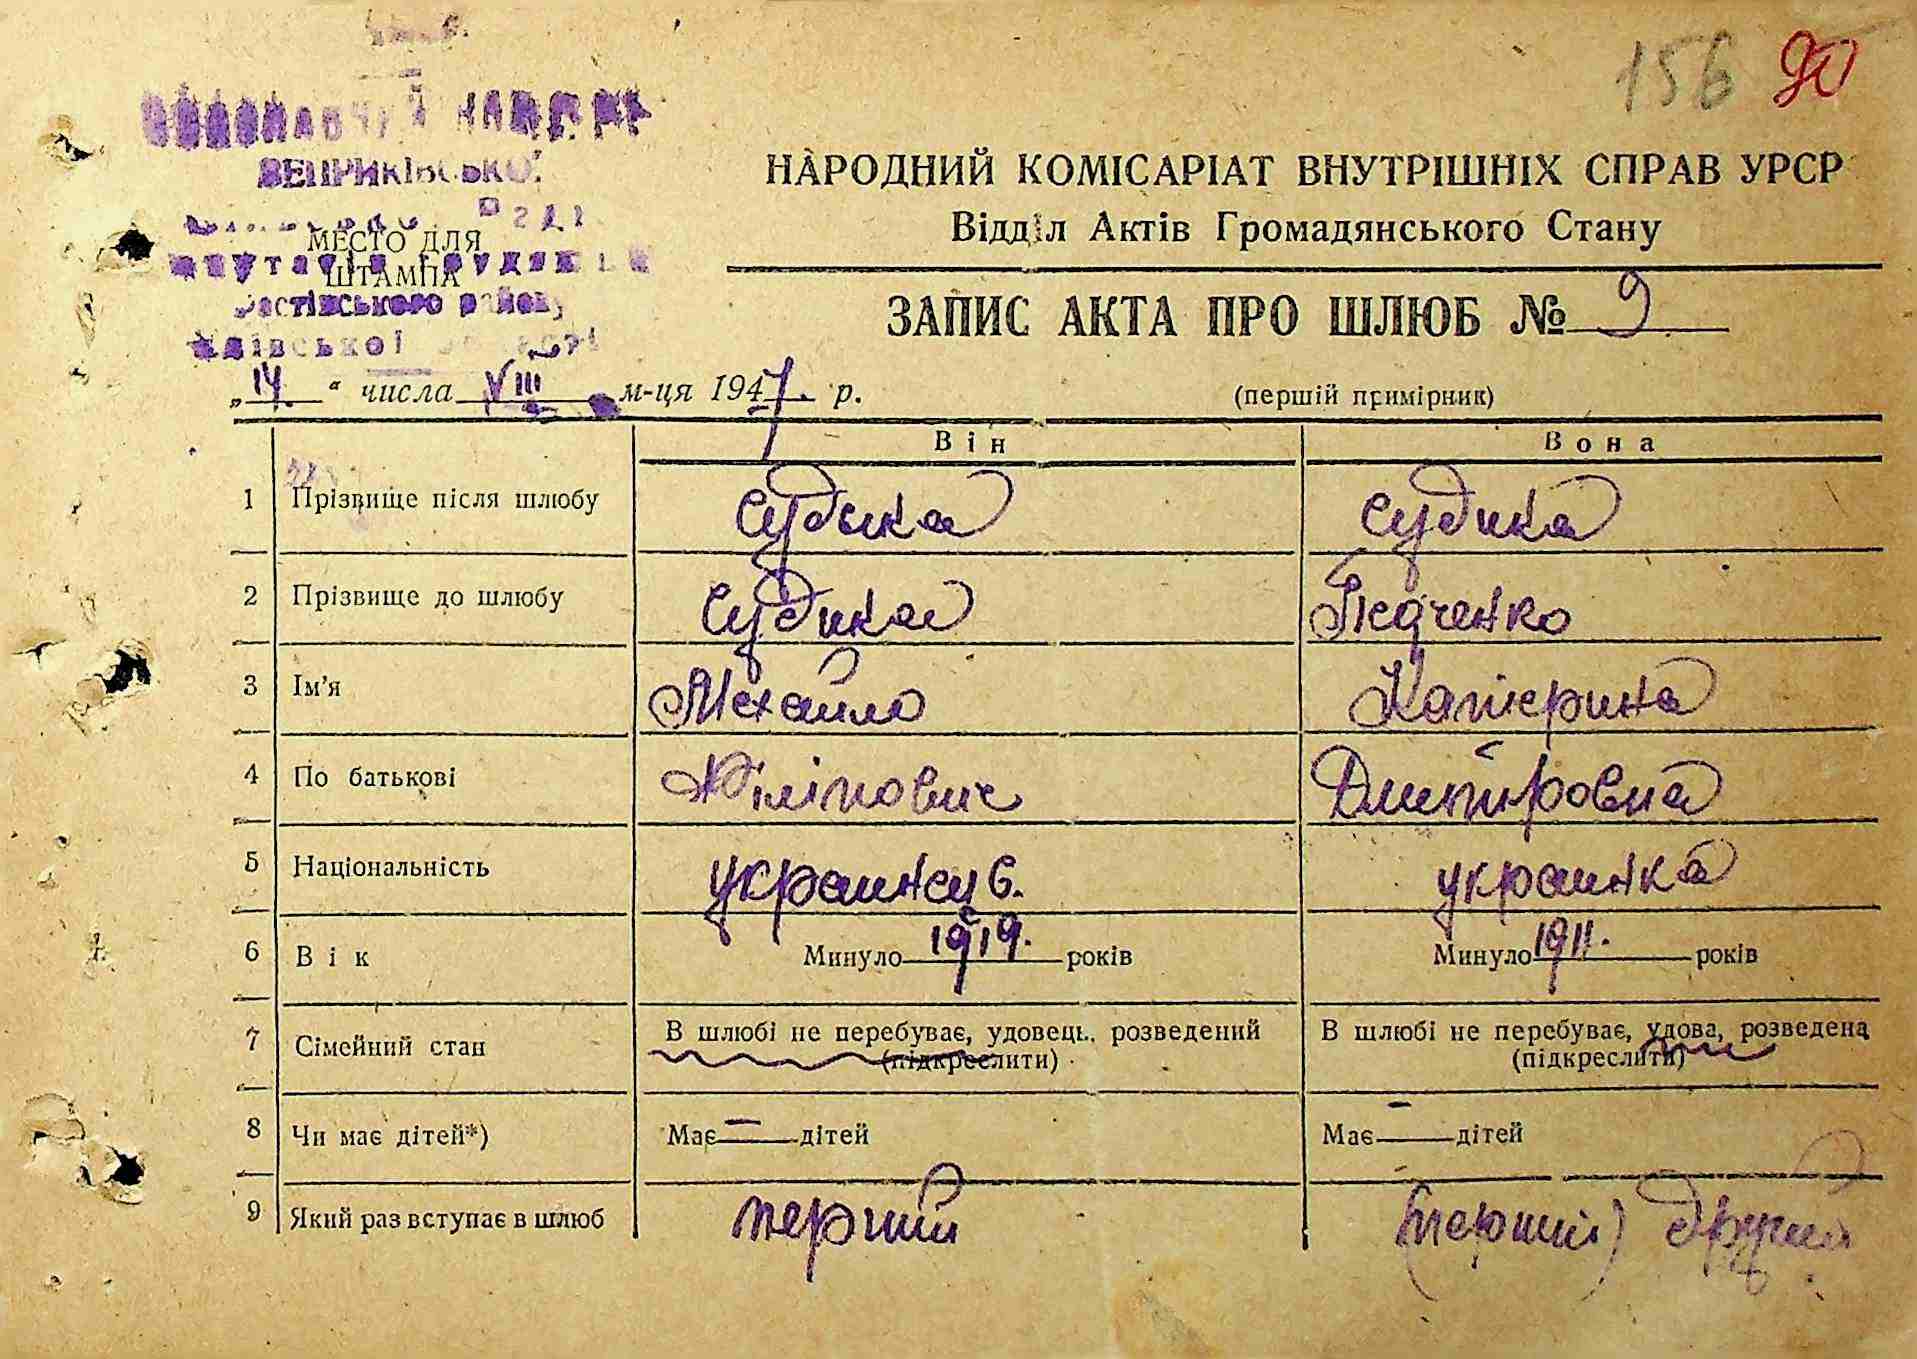 156 90
ВЕПРИКІВСЬКОЇ
НАРОДНИЙ КОМІСАРІАТ ВНУТРІШНІХ СПРАВ УРСР
Відділ Актів Громадянського Стану
МЕСТО ДЛЯ
ШТАМПА
району
ЗАПИС АКТА ПРО ШЛЮБ № 9
„14." числа VIII м-ця 1947. р.
(першій примірник)
Він Вона
1 Прізвище після шлюбу Судика Судика
2 Прізвище до шлюбу Судика Ткаченко
3 Ім'я Михайло Катерина
4 По батькові Піліпович Дмитровна
5 Національність украинец украинка
6 Вік Минуло 1919. років Минуло 1911. років
7 Сімейний стан В шлюбі не перебуває, удовець, розведений В шлюбі не перебуває, удова, розведена
(підкреслити) (підкреслити)
8 Чи має дітей*) Має — дітей Має — дітей
9 Який раз вступає в шлюб перший (перший) другий